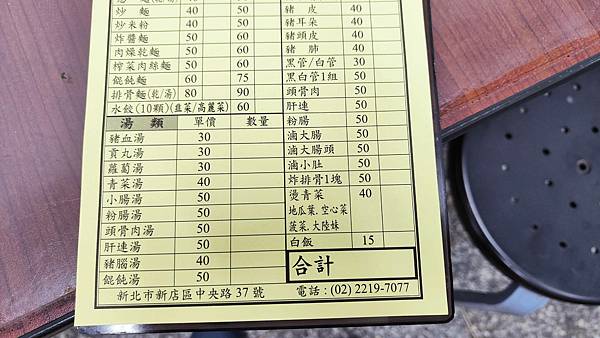 炒麵 40 50
炒米粉 40 50
炸醬麵 50 60
肉燥乾麵 50 60
榨菜肉絲麵 50 60
餛飩麵 60 75
排骨麵(乾/湯) 80 90
水餃(10顆)(韭菜/高麗菜) 60
湯類 單價 數量
豬血湯 30
貢丸湯 30
蘿蔔湯 30
青菜湯 40
小腸湯 50
粉腸湯 50
頭骨肉湯 50
肝連湯 50
豬腦湯 40
餛飩湯 50
豬皮 40
豬耳朵 40
豬頭皮 40
豬肺 40
黑管/白管 30
黑白管1組 50
頭骨肉 50
肝連 50
粉腸 50
滷大腸 50
滷大腸頭 50
滷小肚 50
炸排骨1塊 50
燙青菜 40
地瓜葉.空心菜
菠菜.大陸妹
白飯 15
合計
新北市新店區中央路37號 電話:(02) 2219-7077